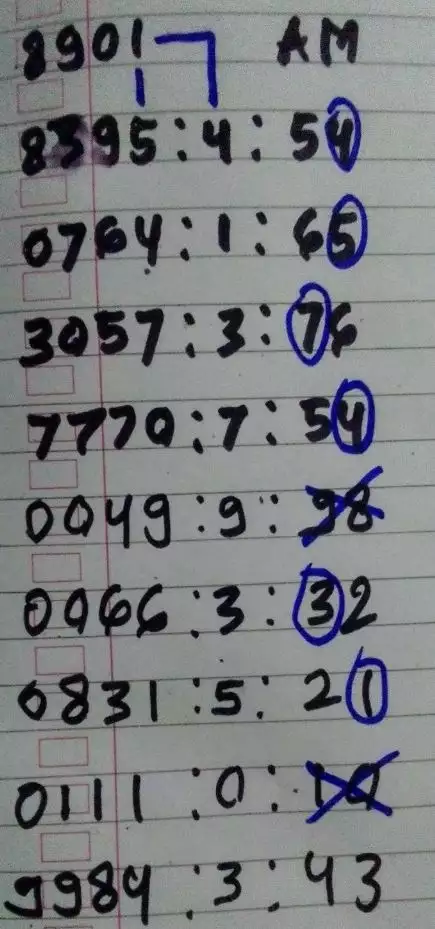 8901 AM
8395 : 4 : 54
0764 : 1 : 65
3057 : 3 : 76
7770 : 7 : 54
0049 : 9 : 98
0066 : 3 : 32
0831 : 5 : 21
0111 : 0 : 10
9984 : 3 : 43